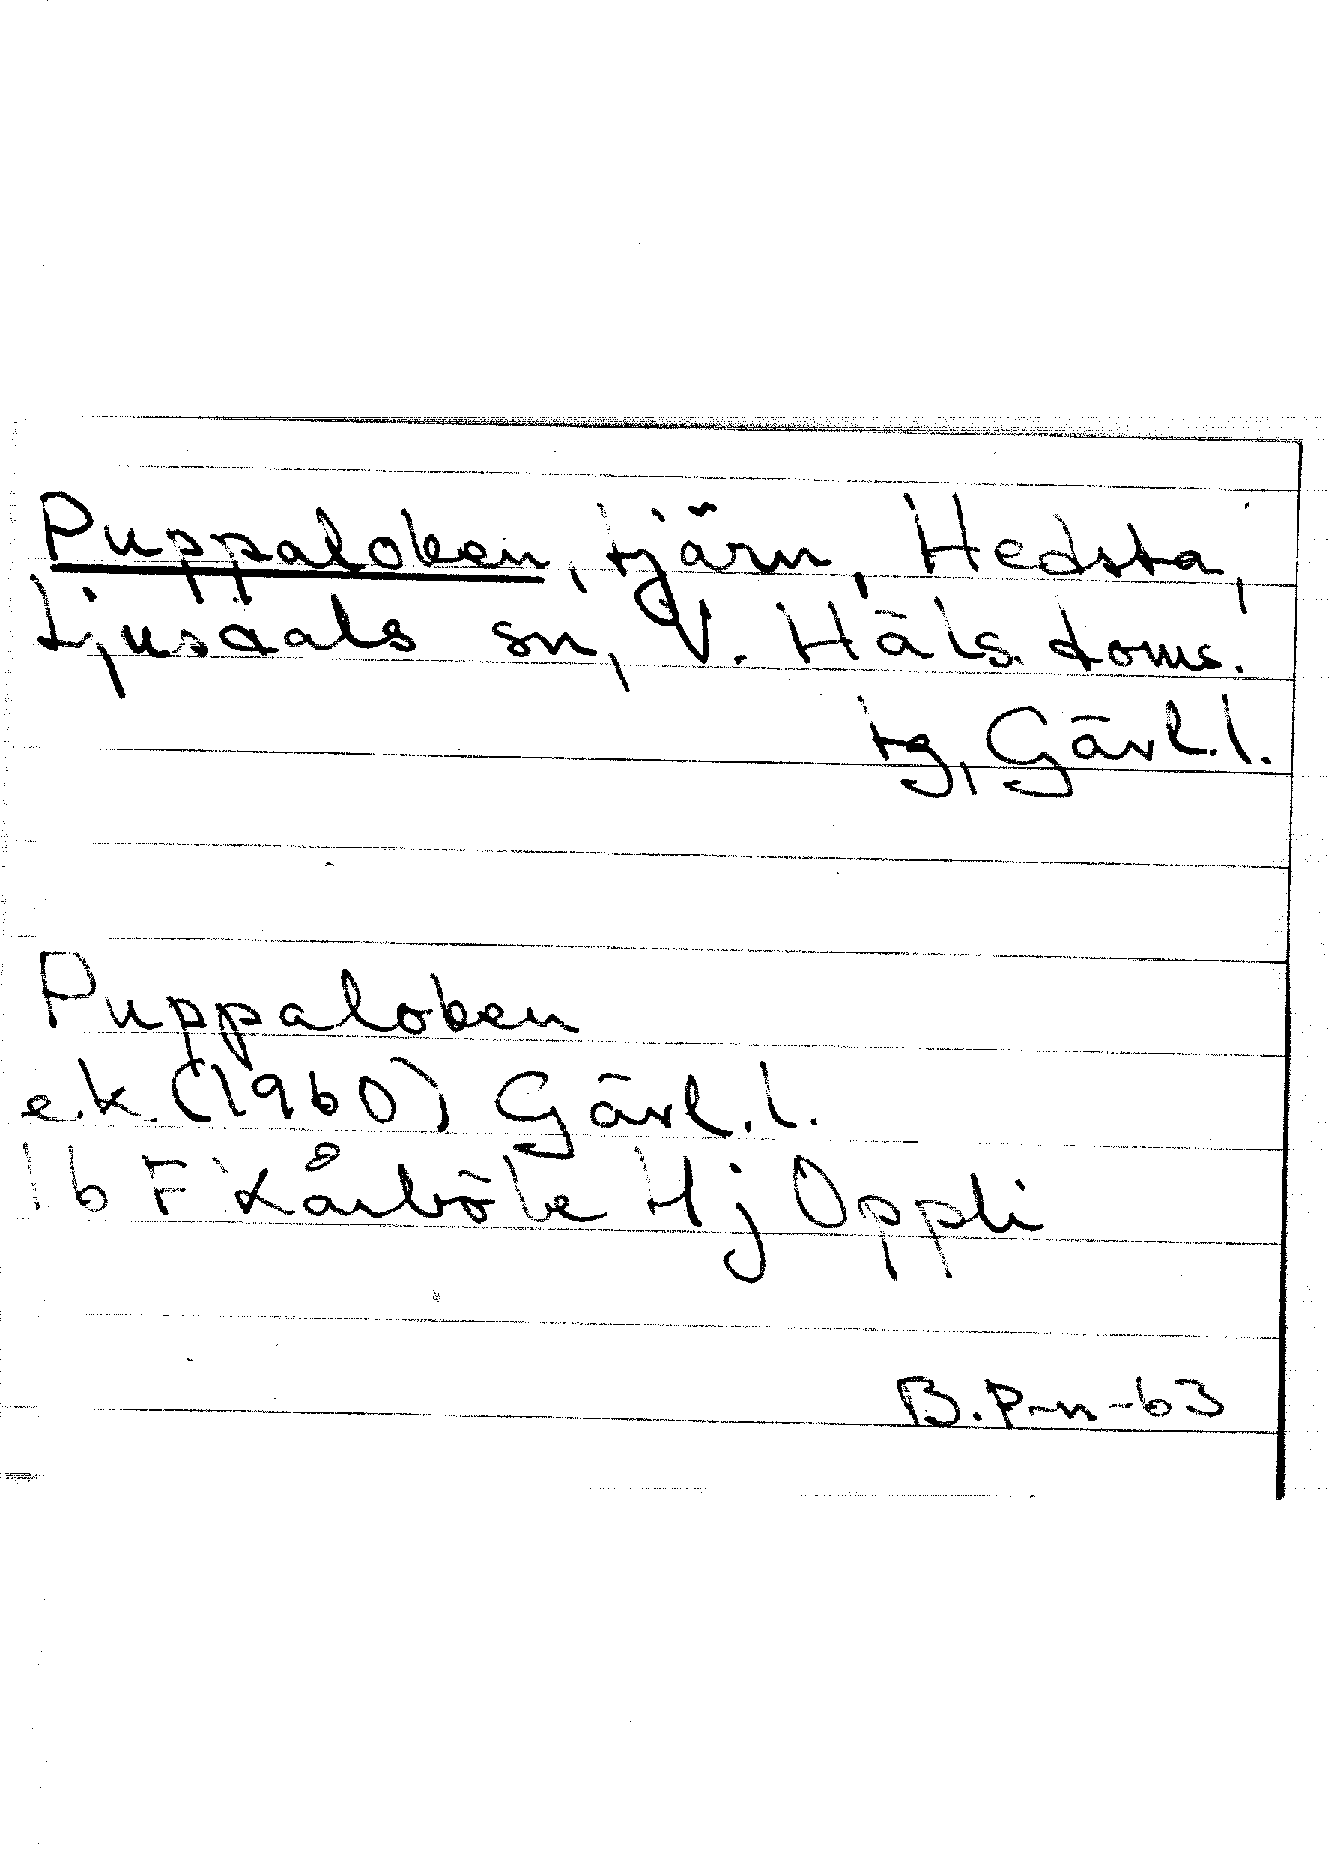 Puppaloken, tjärn, Hedsta,
Ljusdals sn, V. Häls. doms.
tg, Gävl. l.
Puppaloken
e.k. (1960) Gävl. l.
16 F Kårböle Hj Oppli
B. P-n -63